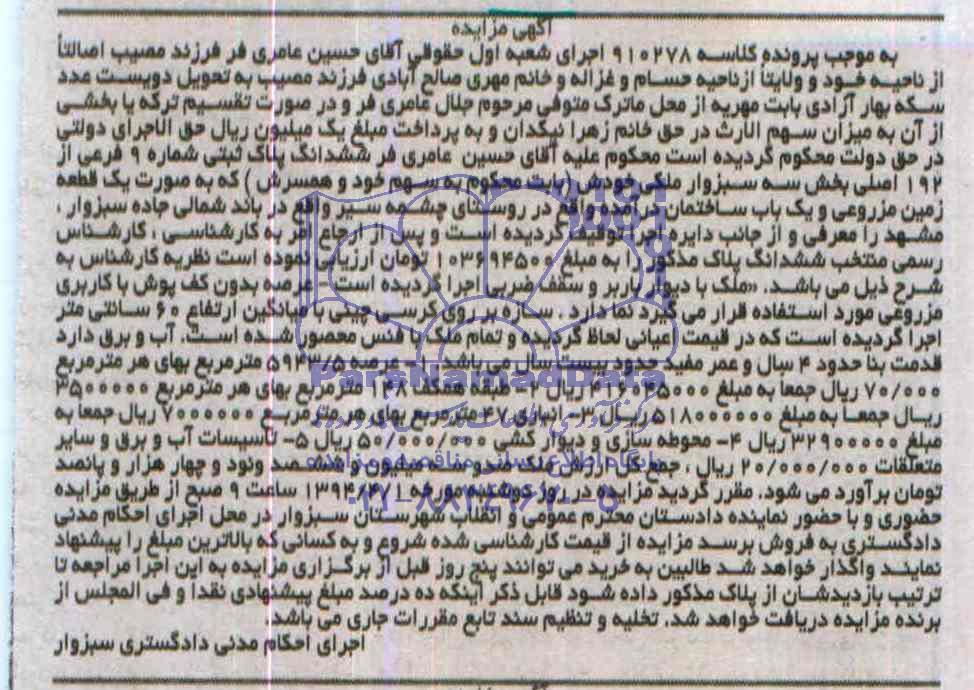 آگهی مزایده
به موجب پرونده کلاسه ۹۱۰۲۷۸ اجرای شعبه اول حقوقی آقای حسین عامری فر فرزند مصیب اصالتاً
از ناحیه خود و ولایتاً ازناحیه حسام و غزاله و خانم مهری صالح آبادی فرزند مصیب به تحویل دویست عدد
سکه بهار آزادی بابت مهریه از محل ماترک متوفی مرحوم جلال عامری فر و در صورت تقسیم ترکه یا بخشی
از آن به میزان سهم الارث در حق خانم زهرا نیگدان و به پرداخت مبلغ یک میلیون ریال حق الاجرای دولتی
در حق دولت محکوم گردیده است محکوم علیه آقای حسین عامری فر ششدانگ پلاک ثبتی شماره ۹ فرعی از
۱۹۲ اصلی بخش سه سبزوار ملکی خودش (بابت محکوم به سهم خود و همسرش ) که به صورت یک قطعه
زمین مزروعی و یک باب ساختمان درآمده واقع در روستای چشمه سیر واقع در باند شمالی جاده سبزوار ،
مشهد را معرفی و از جانب دایره اجرا توقیف گردیده است و پس از ارجاع امر به کارشناسی ، کارشناس
رسمی منتخب ششدانگ پلاک مذکور را به مبلغ ۱۰۳۶۹۴۵۰۰ تومان ارزیابی نموده است نظریه کارشناس به
شرح ذیل می باشد. «ملک با دیوار باربر و سقف ضربی اجرا گردیده است . عرصه بدون کف پوش با کاربری
مزروعی مورد استفاده قرار می گیرد نما ندارد . سازه بر روی کرسی چینی با میانگین ارتفاع ۶۰ سانتی متر
اجرا گردیده است که در قیمت اعیانی لحاظ گردیده و تمام ملک با فنس محصور شده است. آب و برق دارد
قدمت بنا حدود ۴ سال و عمر مفید حدود بیست سال می باشد. عرصه ۵۹۴۳/۵ مترمربع بهای هر مترمربع
۷۰/۰۰۰ ریال جمعا به مبلغ ریال ۲- طبقه همکف ۱۴۸ مترمربع بهای هر مترمربع ۳۵۰۰۰۰۰
ریال جمعا به مبلغ ۵۱۸۰۰۰۰۰۰ ریال ۳- انباری ۴۷ مترمربع بهای هر مترمربع ۷۰۰۰۰۰۰ ریال جمعا به
مبلغ ۳۲۹۰۰۰۰۰ ریال ۴- محوطه سازی و دیوار کشی ۵۰/۰۰۰/۰۰۰ ریال ۵- تاسیسات آب و برق و سایر
متعلقات ۲۰/۰۰۰/۰۰۰ ریال ، جمع کل ارزش ملک صدو سه میلیون و ششصد ونود و چهار هزار و پانصد
تومان برآورد می شود. مقرر گردید مزایده در روز دوشنبه مورخه ساعت ۹ صبح از طریق مزایده
حضوری و با حضور نماینده دادستان محترم عمومی و انقلاب شهرستان سبزوار در محل اجرای احکام مدنی
دادگستری به فروش برسد مزایده از قیمت کارشناسی شده شروع و به کسانی که بالاترین مبلغ را پیشنهاد
نمایند واگذار خواهد شد طالبین به خرید می توانند پنج روز قبل از برگزاری مزایده به این اجرا مراجعه تا
ترتیب بازدیدشان از پلاک مذکور داده شود قابل ذکر اینکه ده درصد مبلغ پیشنهادی نقدا و فی المجلس از
برنده مزایده دریافت خواهد شد. تخلیه و تنظیم سند تابع مقررات جاری می باشد.
اجرای احکام مدنی دادگستری سبزوار
ParsNamadData